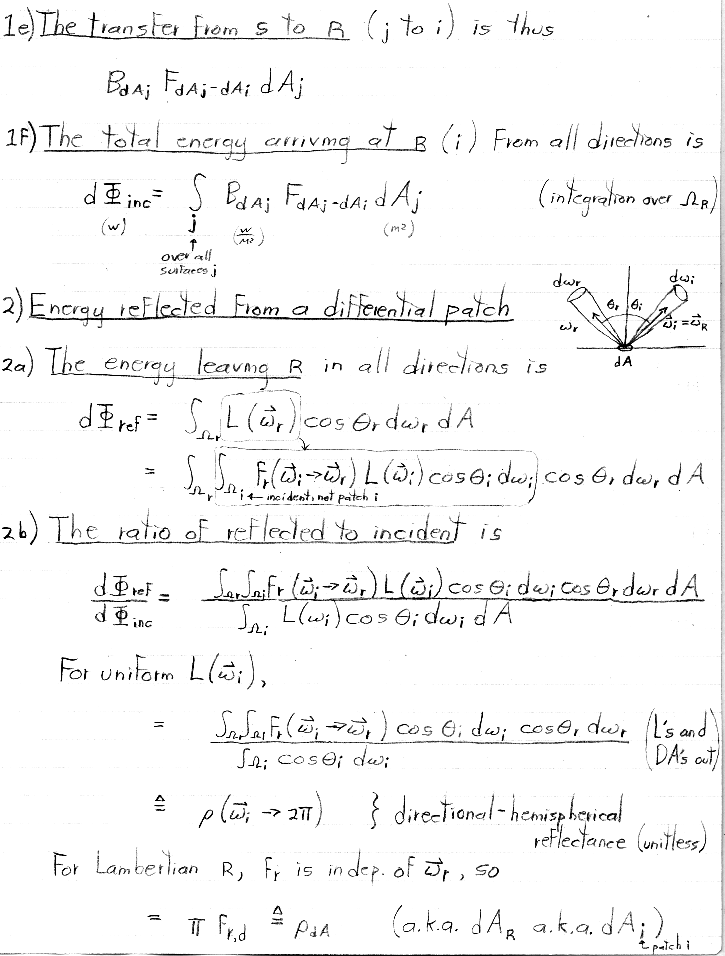 1e) The transfer from S to R (j to i) is thus
B_dAj F_dAj-dAi dAj
1F) The total energy arriving at R (i) From all directions is
dΦ_inc = ∫_j B_dAj F_dAj-dAi dAj (integration over Ω_R)
(w) (w/m²) (m²)
↑
over all
surfaces j
dωr dωi
θr θi
ωr ω⃗i = ω⃗R
dA
2) Energy reflected From a differential patch
2a) The energy leaving R in all directions is
dΦ_ref = ∫_Ωr L(ω⃗r) cos θr dωr dA
= ∫_Ωr ∫_Ωi Fr(ω⃗i→ω⃗r) L(ω⃗i) cos θi dωi cos θr dωr dA
i ← incident, not patch i
2b) The ratio of reflected to incident is
dΦ_ref / dΦ_inc = ∫_Ωr ∫_Ωi Fr(ω⃗i→ω⃗r) L(ω⃗i) cos θi dωi cos θr dωr dA / ∫_Ωi L(ωi) cos θi dωi dA
For uniform L(ω⃗i),
= ∫_Ωr ∫_Ωi Fr(ω⃗i→ω⃗r) cos θi dωi cos θr dωr / ∫_Ωi cos θi dωi (L's and
DA's out)
≜ ρ(ω⃗i → 2π) } directional-hemispherical
reflectance (unitless)
For Lambertian R, Fr is indep. of ω⃗r, so
= π Fr,d ≜ ρ_dA (a.k.a. dA_R a.k.a. dA_i)
↑ patch i